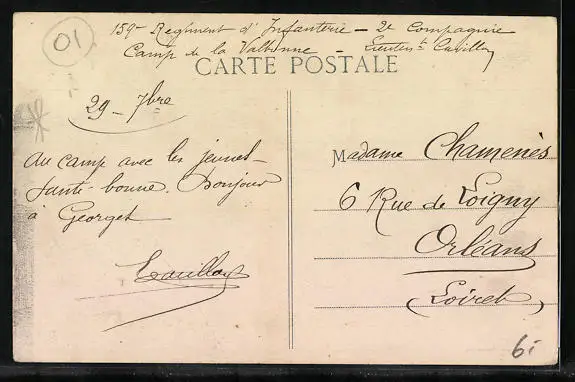 01
159e Regiment d'Infanterie – 2e Compagnie
Camp de la Valbonne – Lieuten.t Cavillon
CARTE POSTALE
29 – 7bre
Au camp avec les jeunes –
Santé bonne. Bonjour
à Georget
Madame Chamenès
6 Rue de Loigny
Orléans
(Loiret)
6: